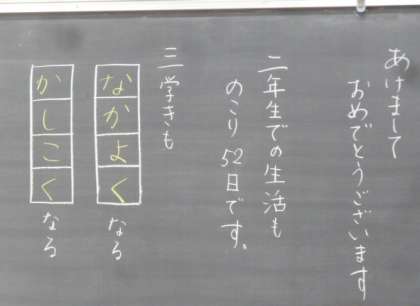 あけまして
おめでとうございます
二年生での生活も
のこり52日です。
三学きも
なかよくなる
かしこくなる